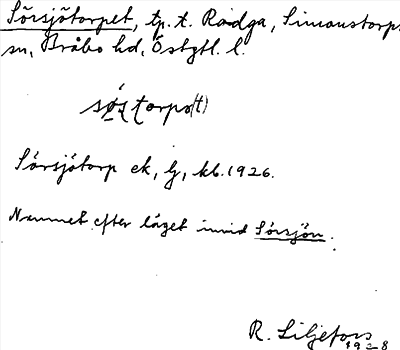 Sörsjötorpet, tp. t. Rodga, Simonstorps
sn, Bråbo hd, Östgtl. l.
Sörsjötorp ek, lj, kb. 1926.
Namnet efter läget invid Sörsjön.
R. Liljefors
1928